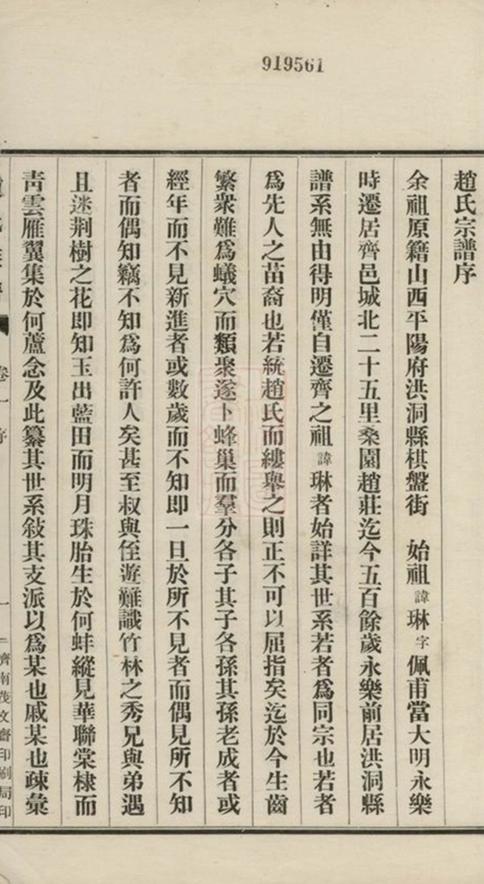 919561
趙氏宗譜序
余祖原籍山西平陽府洪洞縣棋盤街　始祖諱琳字佩甫當大明永樂
時遷居齊邑城北二十五里桑園趙莊迄今五百餘歲永樂前居洪洞縣
譜系無由得明僅自遷齊之祖諱琳者始詳其世系若者為同宗也若者
為先人之苗裔也若統趙氏而縷舉之則正不可以屈指矣迄於今生齒
繁衆難為蟻穴而類聚遂卜蜂巢而羣分各子其子各孫其孫老成者或
經年而不見新進者或數歲而不知即一旦於所不見者而偶見所不知
者而偶知竊不知為何許人矣甚至叔與侄遊難識竹林之秀兄與弟遇
且迷荆樹之花即知玉出藍田而明月珠胎生於何蚌縱見華聯棠棣而
青雲雁翼集於何蘆念及此纂其世系敍其支派以為某也戚某也疎彙
卷一　序
一
濟南茂文齋印刷局印